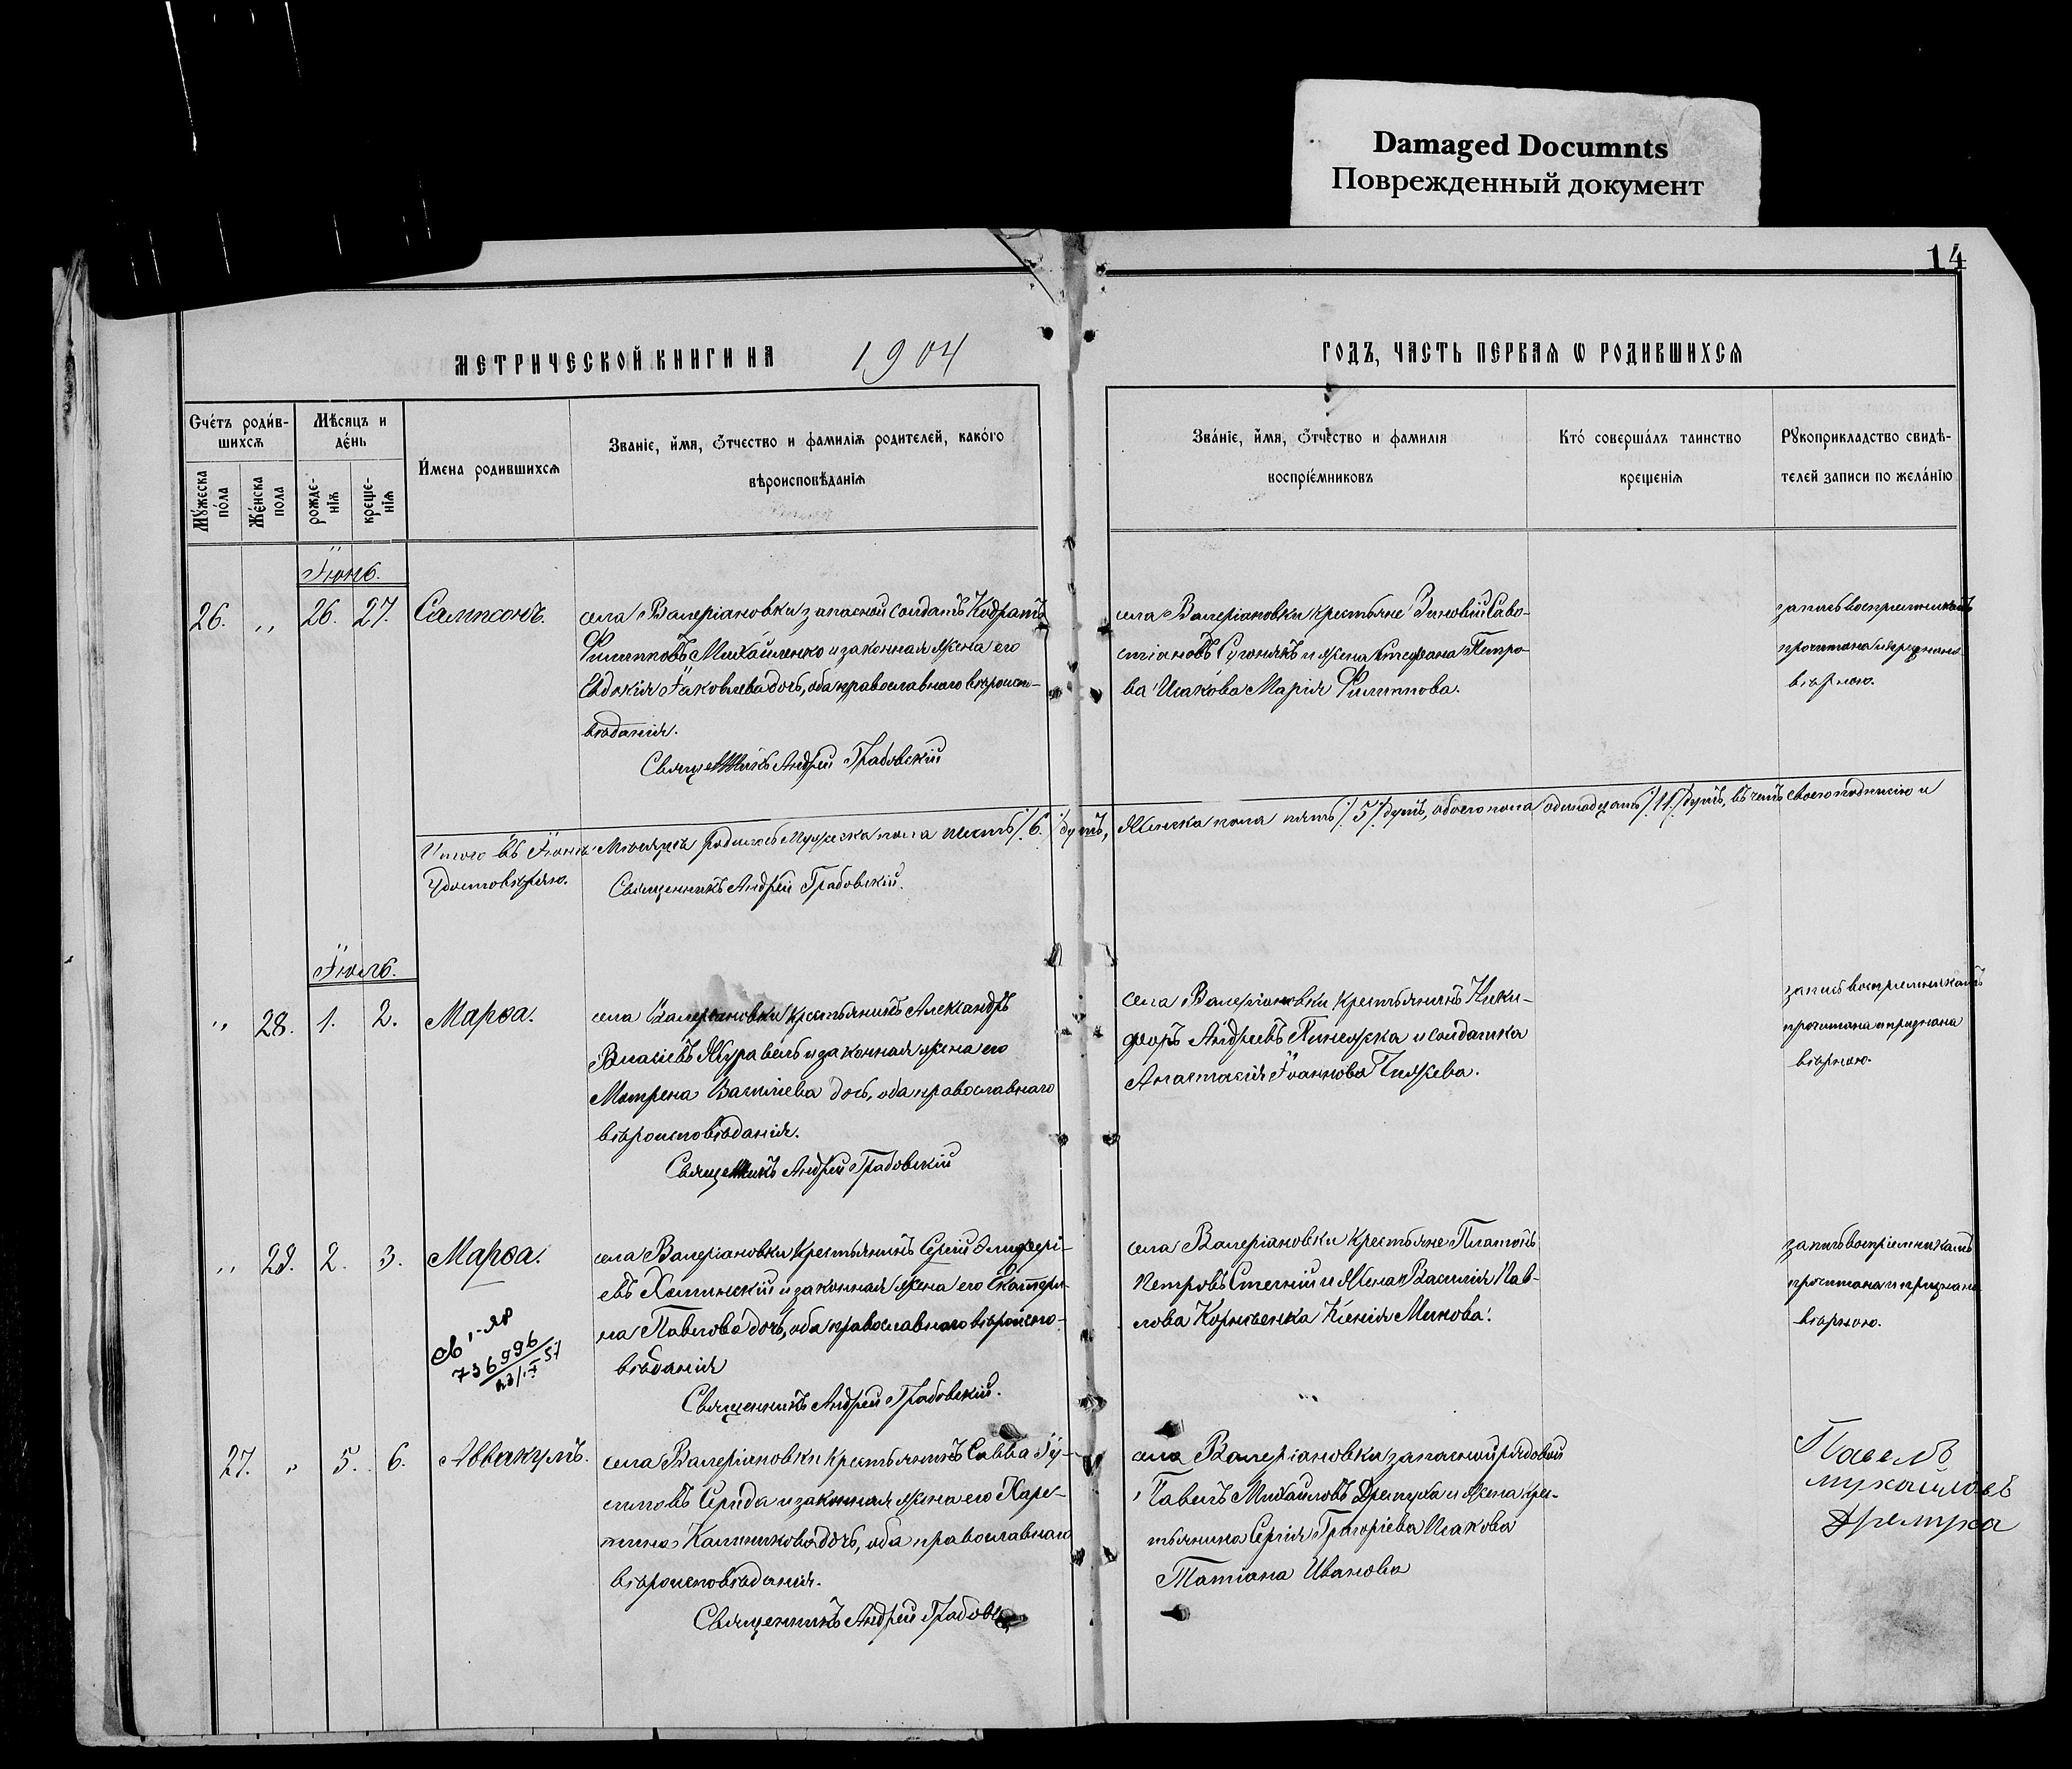 Damaged Documnts
Поврежденный документ
14
МЕТРИЧЕСКОЙ КНИГИ НА 1904
ГОДЪ, ЧАСТЬ ПЕРВАѦ Ѡ РОДИВШИХСѦ
Счéтъ роди́в-
шихсѧ
Мѣсяцъ и
дéнь
Мꙋ́жеска
по́ла
Же́нска
пола
рожде-
нїѧ
креще-
нїѧ
И́мена родившихсѧ
Званїе, и́мя, ѻ҆́тчество и фамилїѧ родителей, како́гѡ
вѣроисповѣданїѧ
Зва́нїе, и́мя, ѻ҆́тчество и фамилїя
воспрїе́мниковъ
Кто́ соверша́лъ таинство
крещенїѧ
Рꙋкоприкладство свидѣ-
телей записи по жела́нїю
Іюнь.
26. " 26. 27. Сампсонъ.
села Валеріановки запасной солдатъ Кодратъ
Филипповъ Михайленко и законная жена его
Евдокія Іаковлева дочь, оба православнаго вѣроиспо-
вѣданія.
Священникъ Андрей Грабовскій
села Валеріановки крестьяне Зиновій Саво-
стіановъ и жена Стефана Петро-
ва Исакова Марія Филиппова.
запись воспріемникамъ
прочитана и признана
вѣрною.
Итого въ Іюнѣ Мѣсяцѣ родилось Мужеска пола шесть /6./ душъ, Женска пола пять /5/ душъ, обоего пола одинадцать /11/ душъ, въ чемъ своею подписью и
удостовѣряю. Священникъ Андрей Грабовскій.
Іюль.
" 28. 1. 2. Марѳа.
села Валеріановки крестьянинъ Александръ
Власіевъ Журавель и законная жена его
Матрена Василіева дочь, оба православнаго
вѣроисповѣданія.
Священникъ Андрей Грабовскій
села Валеріановки крестьянинъ Ники-
форъ Андреевъ и солдатка
Анастасія Іоаннова
запись воспріемникамъ
прочитана и признана
вѣрною.
" 29. 2. 3. Марѳа.
736996
села Валеріановки крестьянинъ Сергій Елифері-
евъ и законная жена его Екатери-
на Павлова дочь, оба православнаго вѣроиспо-
вѣданія
Священникъ Андрей Грабовскій.
села Валеріановки крестьяне Платонъ
Петровъ и жена Василія Пав-
лова Корніенка Ксенія Минова.
запись воспріемникамъ
прочитана и признана
вѣрною.
27. " 5. 6. Аввакумъ.
села Валеріановки крестьянинъ Савва Іу-
стиновъ Середа и законная жена его Хари-
тина Каллиникова дочь, оба православнаго
вѣроисповѣданія.
Священникъ Андрей Грабовс
села Валеріановки запасной рядовой
Павелъ Михайловъ Дремуха и жена крес-
тьянина Сергія Григоріева Исакова
Татіана Иванова
Павелъ
Михайловъ
Дремуха